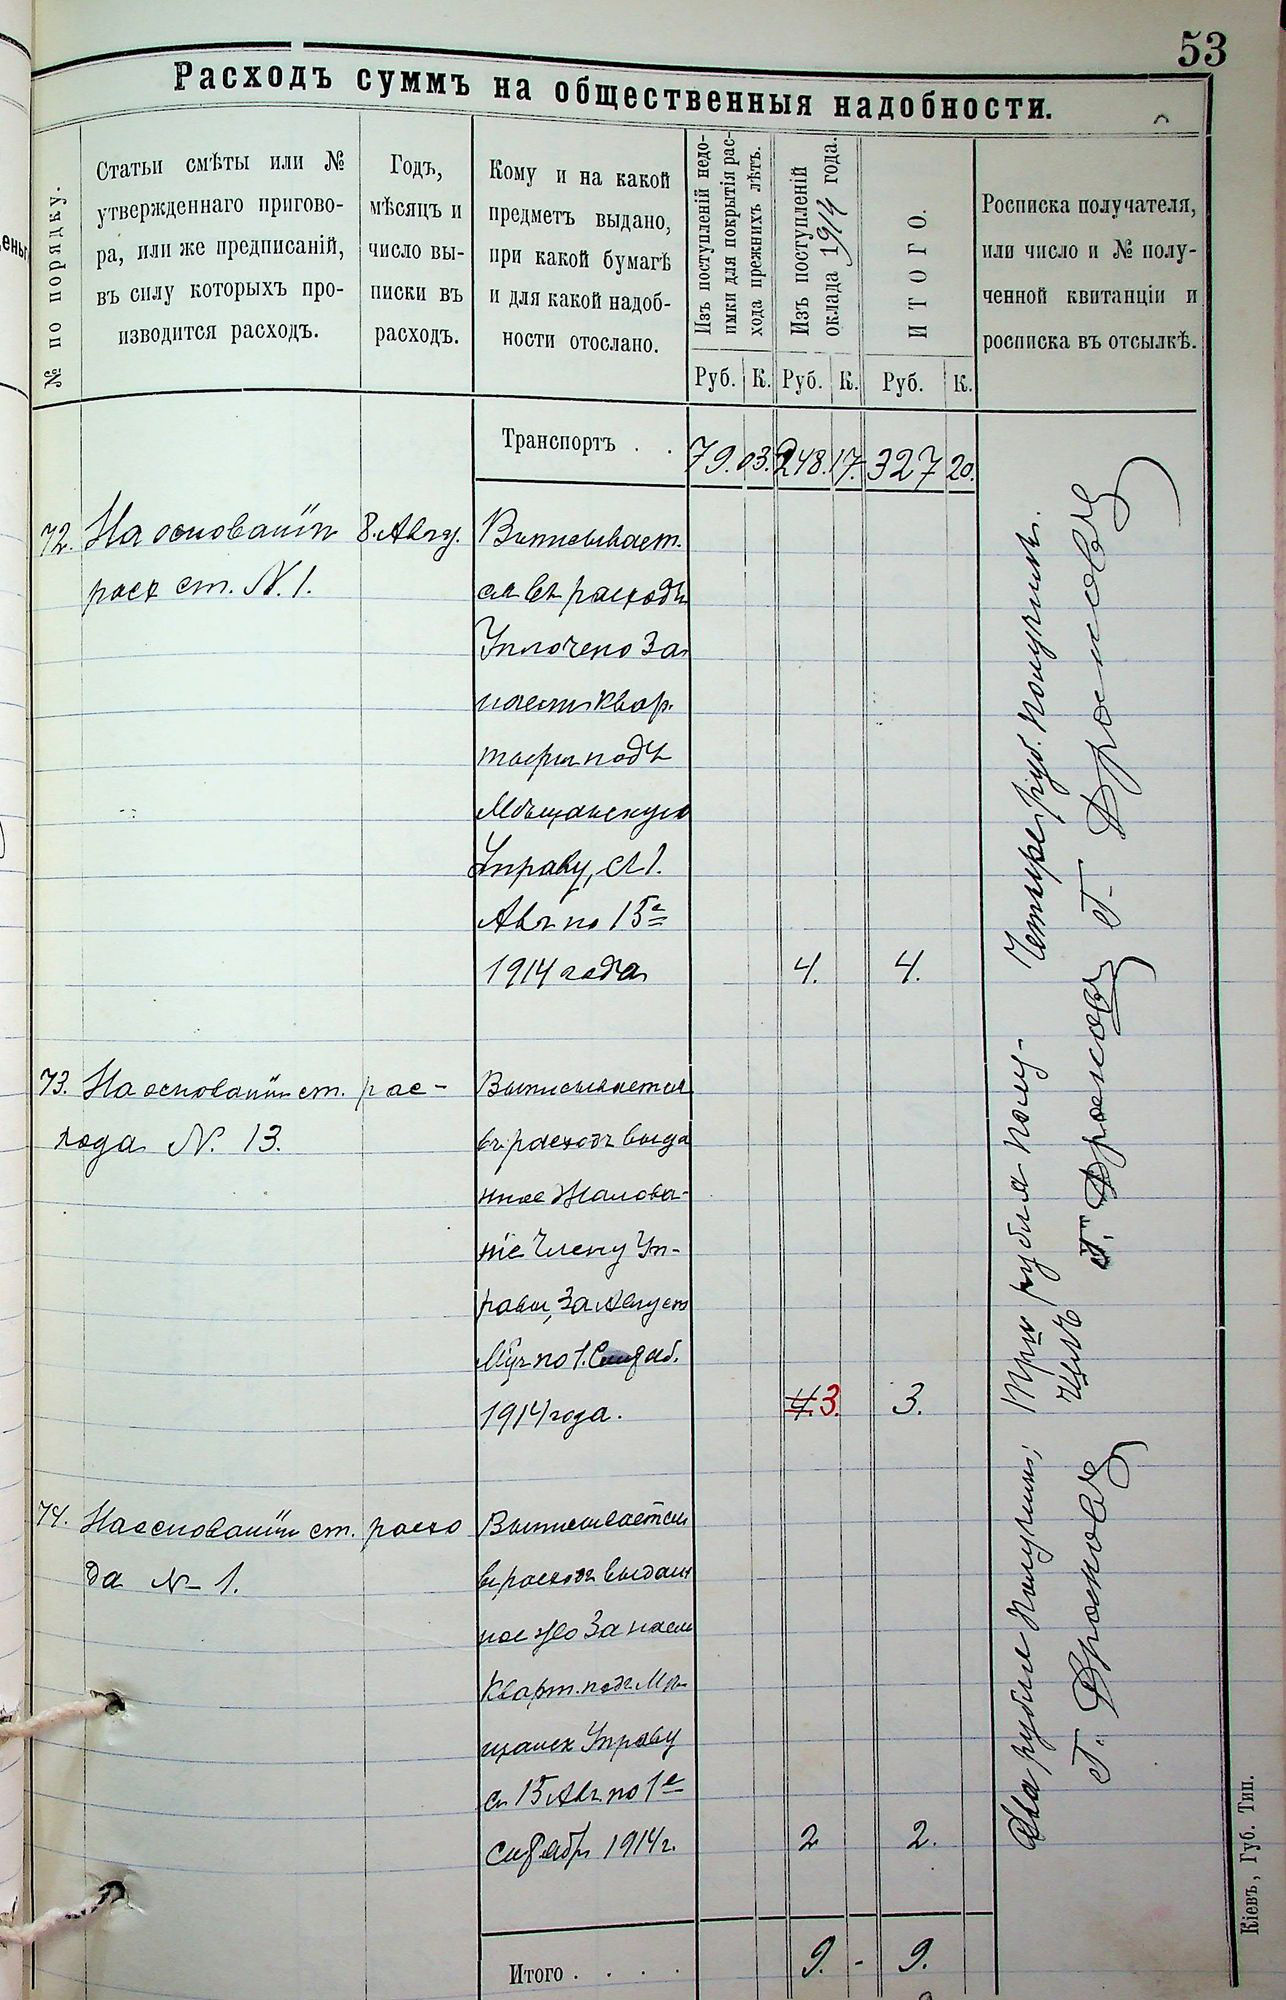 53
Расходъ суммъ на общественныя надобности.
№ по порядку.
Статьи смѣты или №
утвержденнаго пригово-
ра, или же предписаній,
въ силу которыхъ про-
изводится расходъ.
Годъ,
мѣсяцъ и
число вы-
писки въ
расходъ.
Кому и на какой
предметъ выдано,
при какой бумагѣ
и для какой надоб-
ности отослано.
Изъ поступленій недо-
имки для покрытія рас-
хода прежнихъ лѣтъ.
Изъ поступленій
оклада 1914 года.
ИТОГО.
Росписка получателя,
или число и № полу-
ченной квитанціи и
росписка въ отсылкѣ.
Руб. К. Руб. К. Руб. К.
Транспортъ . . 79. 03. 248. 17. 327 20.
72. На основаніи 8. Авгу. Выписывает.
расх ст. N. 1. ся въ расходъ
Уплочено За
наемъ квар.
тыры подъ
Мѣщанскую
Управу, съ 1.
Авг по 15е
1914 года 4. 4.
Четыре руб. получилъ.
Г. Дросковъ
73. На основаніи ст. рас- Выписывается
хода N. 13. въ расходъ выда
ное Жалова-
ніе Члену Уп-
равы, За Августъ
М-цъ по 1. Сентяб.
1914 года. 4. 3. 3.
Три рубля полу-
чилъ Г. Дросковъ
74. На основаніи ст. расхо Выписывается
да N- 1. въ расходъ выдан
ное За наем
Кварт. подъ Мѣ-
щанск Управу
съ 15 Авг по 1е
сентябр 1914 г. 2 2.
Два рубля Получилъ;
Г. Дросковъ
Итого . . . . 9. - 9.
Кіевъ, Губ. Тип.